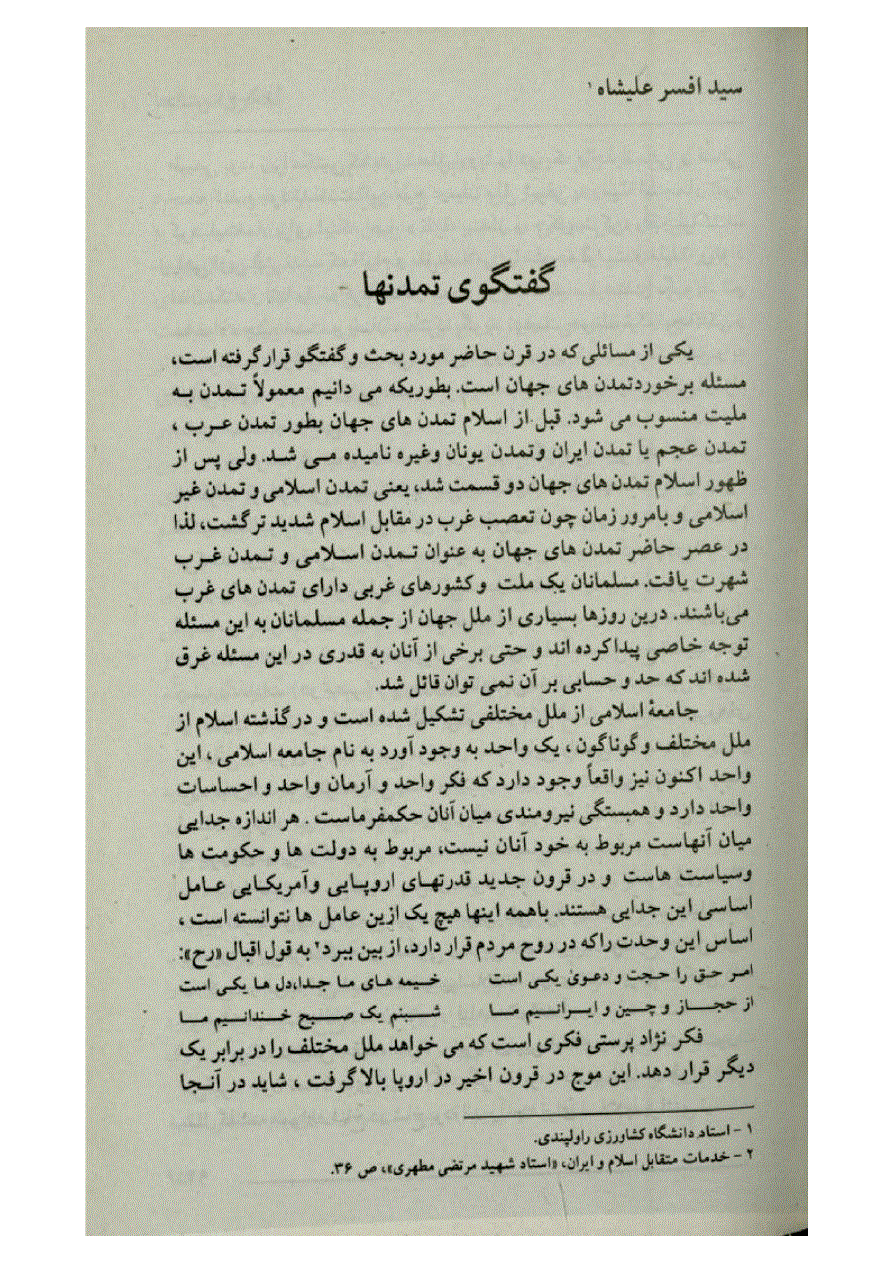 سید افسر علیشاه ۱
گفتگوی تمدنها
یکی از مسائلی که در قرن حاضر مورد بحث و گفتگو قرار گرفته است،
مسئله برخوردتمدن های جهان است. بطوریکه می دانیم معمولاً تمدن به
ملیت منسوب می شود. قبل از اسلام تمدن های جهان بطور تمدن عرب ،
تمدن عجم یا تمدن ایران وتمدن یونان وغیره نامیده می شد. ولی پس از
ظهور اسلام تمدن های جهان دو قسمت شد، یعنی تمدن اسلامی و تمدن غیر
اسلامی و بامرور زمان چون تعصب غرب در مقابل اسلام شدید تر گشت، لذا
در عصر حاضر تمدن های جهان به عنوان تمدن اسلامی و تمدن غرب
شهرت یافت. مسلمانان یک ملت و کشورهای غربی دارای تمدن های غرب
می‌باشند. درین روزها بسیاری از ملل جهان از جمله مسلمانان به این مسئله
توجه خاصی پیدا کرده اند و حتی برخی از آنان به قدری در این مسئله غرق
شده اند که حد و حسابی بر آن نمی توان قائل شد.
جامعهٔ اسلامی از ملل مختلفی تشکیل شده است و در گذشته اسلام از
ملل مختلف و گوناگون ، یک واحد به وجود آورد به نام جامعه اسلامی ، این
واحد اکنون نیز واقعاً وجود دارد که فکر واحد و آرمان واحد و احساسات
واحد دارد و همبستگی نیرومندی میان آنان حکمفرماست . هر اندازه جدایی
میان آنهاست مربوط به خود آنان نیست، مربوط به دولت ها و حکومت ها
وسیاست هاست و در قرون جدید قدرتهای اروپایی وآمریکایی عامل
اساسی این جدایی هستند. باهمه اینها هیچ یک ازین عامل ها نتوانسته است ،
اساس این وحدت راکه در روح مردم قرار دارد، از بین ببرد۲ به قول اقبال «رح»:
امر حق را حجت و دعویٰ یکی است خیمه های ما جدا،دل ها یکی است
از حجاز و چین و ایرانیم ما شبنم یک صبح خندانیم ما
فکر نژاد پرستی فکری است که می خواهد ملل مختلف را در برابر یک
دیگر قرار دهد. این موج در قرون اخیر در اروپا بالا گرفت ، شاید در آنجا
۱ - استاد دانشگاه کشاورزی راولپندی.
۲ - خدمات متقابل اسلام و ایران، «استاد شهید مرتضی مطهری»، ص ۳۶.